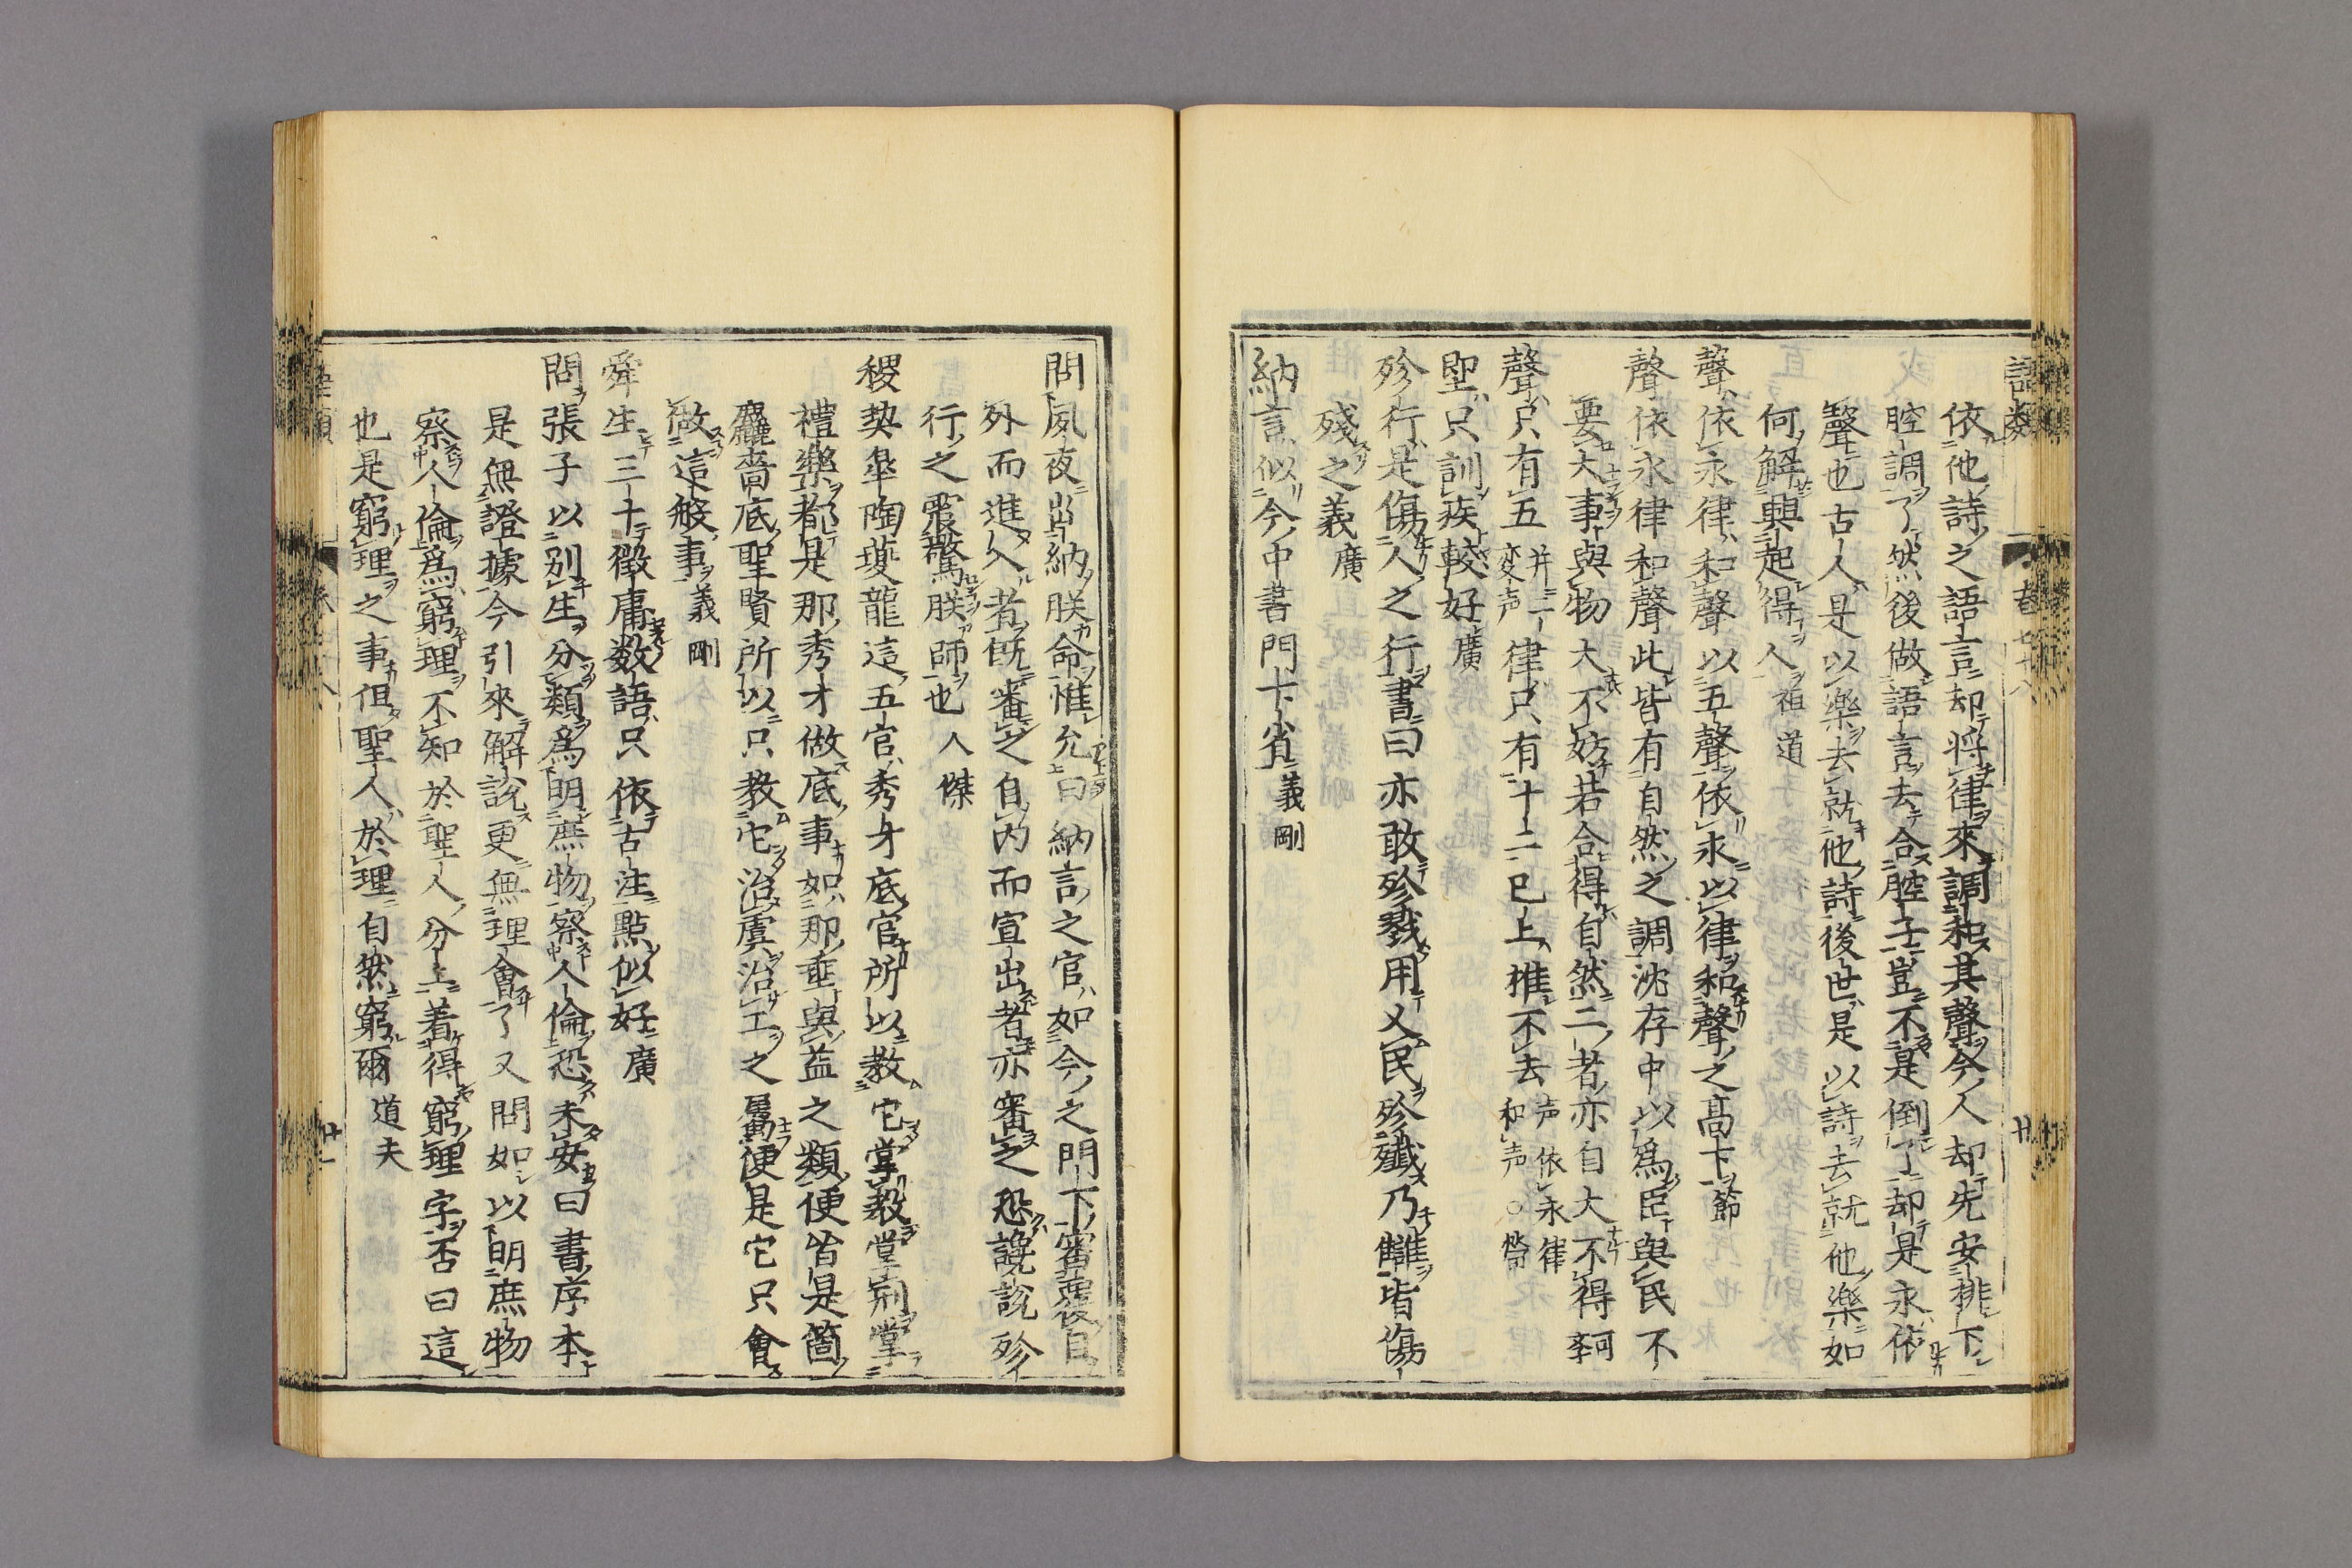 語類
卷七十八
廿
依他詩之語言却將律來調和其聲今人却先安排下
腔調了然後做語言去合腔子豈不是倒了却是永依
聲也古人是以樂去就他詩後世是以詩去就他樂如
何解興起得人 祖道
聲依永律和聲以五聲依永以律和聲之高下 節
聲依永律和聲此皆有自然之調沈存中以爲臣與民不
要大事與物大不妨若合得自然二者亦自大不得 可學
聲只有五 并二変声 律只有十二已上推不去 声依永律和声○
堲只訓疾較好 廣
殄行是傷人之行書曰亦敢殄戮用乂民殄殲乃讎皆傷
殘之義 廣
納言似今中書門下省 義剛
問夙夜出納朕命惟允曰納言之官如今之門下審覆自
外而進入者既審之自內而宣出者亦審之恐讒說殄
行之震驚朕師也 人傑
稷契皐陶夔龍這五官秀才底官所以教它掌教掌刑掌
禮樂都是那秀才做底事如那垂與益之類便皆是箇
麤嗇底聖賢所以只教它治虞治工之屬便是它只會
做這般事 義剛
舜生三十徵庸数語只依古注點似好 廣
問張子以別生分類爲明庶物察人倫恐未安曰書序本
是無證據今引來解說更無理會了又問如以明庶物
察人倫爲窮理不知於聖人分上着得窮理字否曰這
也是窮理之事但聖人於理自然窮爾 道夫
廿一